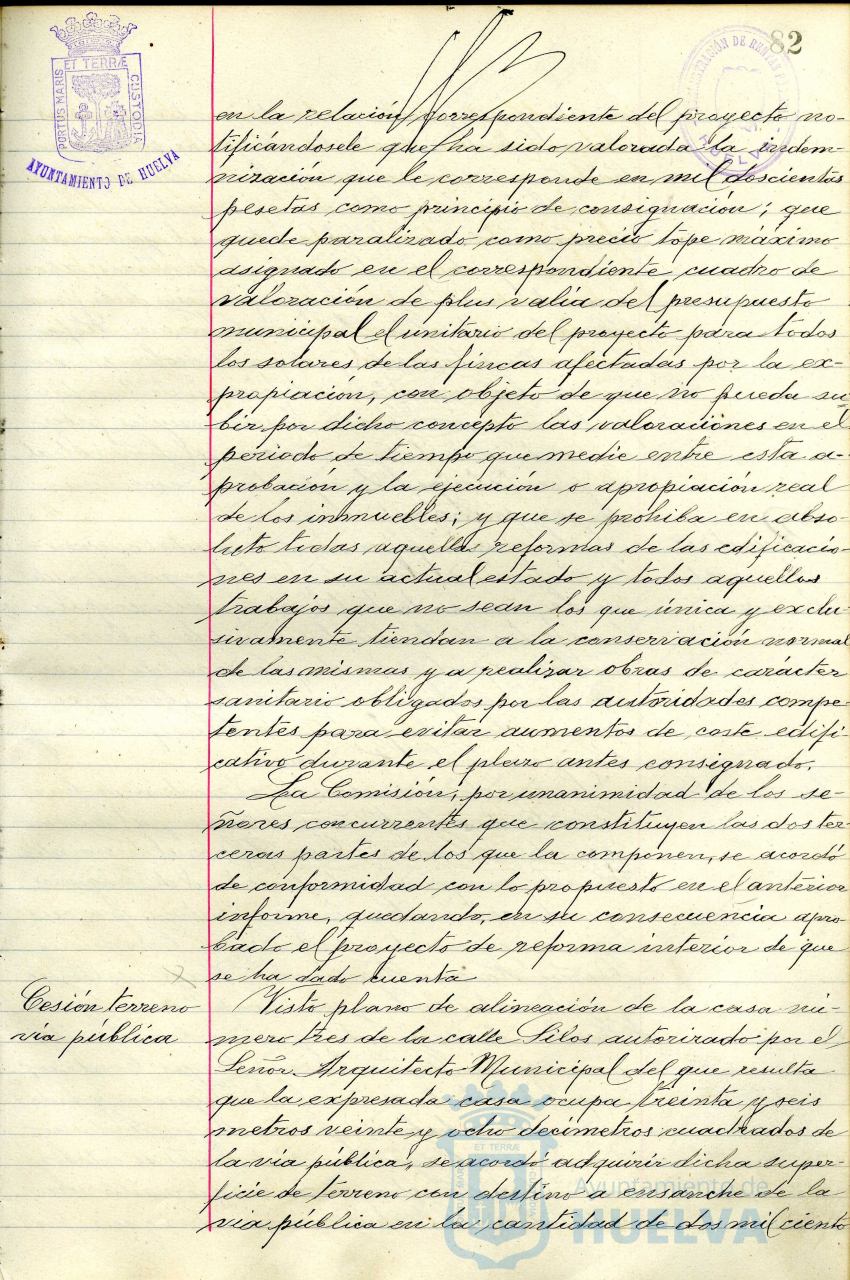 82
PORTUS MARIS ET TERRÆ CUSTODIA
AYUNTAMIENTO DE HUELVA
HUELVA
en la relación correspondiente del proyecto no-
tificándosele que ha sido valorada la indem-
nización que le corresponde en mil doscientas
pesetas como principio de consignación; que
quede paralizado como precio tope máximo
asignado en el correspondiente cuadro de
valoración de plus valía del presupuesto
municipal el unitario del proyecto para todos
los solares de las fincas afectadas por la ex-
propiación, con objeto de que no pueda su-
bir por dicho concepto las valoraciones en el
periodo de tiempo que medie entre esta a-
probación y la ejecución o apropiación real
de los inmuebles; y que se prohiba en abso-
luto todas aquellas reformas de las edificacio-
nes en su actual estado y todos aquellos
trabajos que no sean los que única y exclu-
sivamente tiendan a la conservación normal
de las mismas y a realizar obras de carácter
sanitario obligados por las autoridades compe-
tentes para evitar aumentos de coste edifi-
cativo durante el plazo antes consignado.
La Comisión, por unanimidad de los se-
ñores concurrentes que constituyen las dos ter-
ceras partes de los que la componen, se acordó
de conformidad con lo propuesto en el anterior
informe, quedando, en su consecuencia apro-
bado el proyecto de reforma interior de que
se ha dado cuenta
Cesión terreno
vía pública
Visto plano de alineación de la casa nú-
mero tres de la calle Silos autorizado por el
Señor Arquitecto Municipal del que resulta
que la expresada casa ocupa treinta y seis
metros veinte y ocho decímetros cuadrados de
la vía pública, se acordó adquirir dicha super-
ficie de terreno con destino a ensanche de la
vía pública en la cantidad de dos mil ciento
Ayuntamiento de
HUELVA